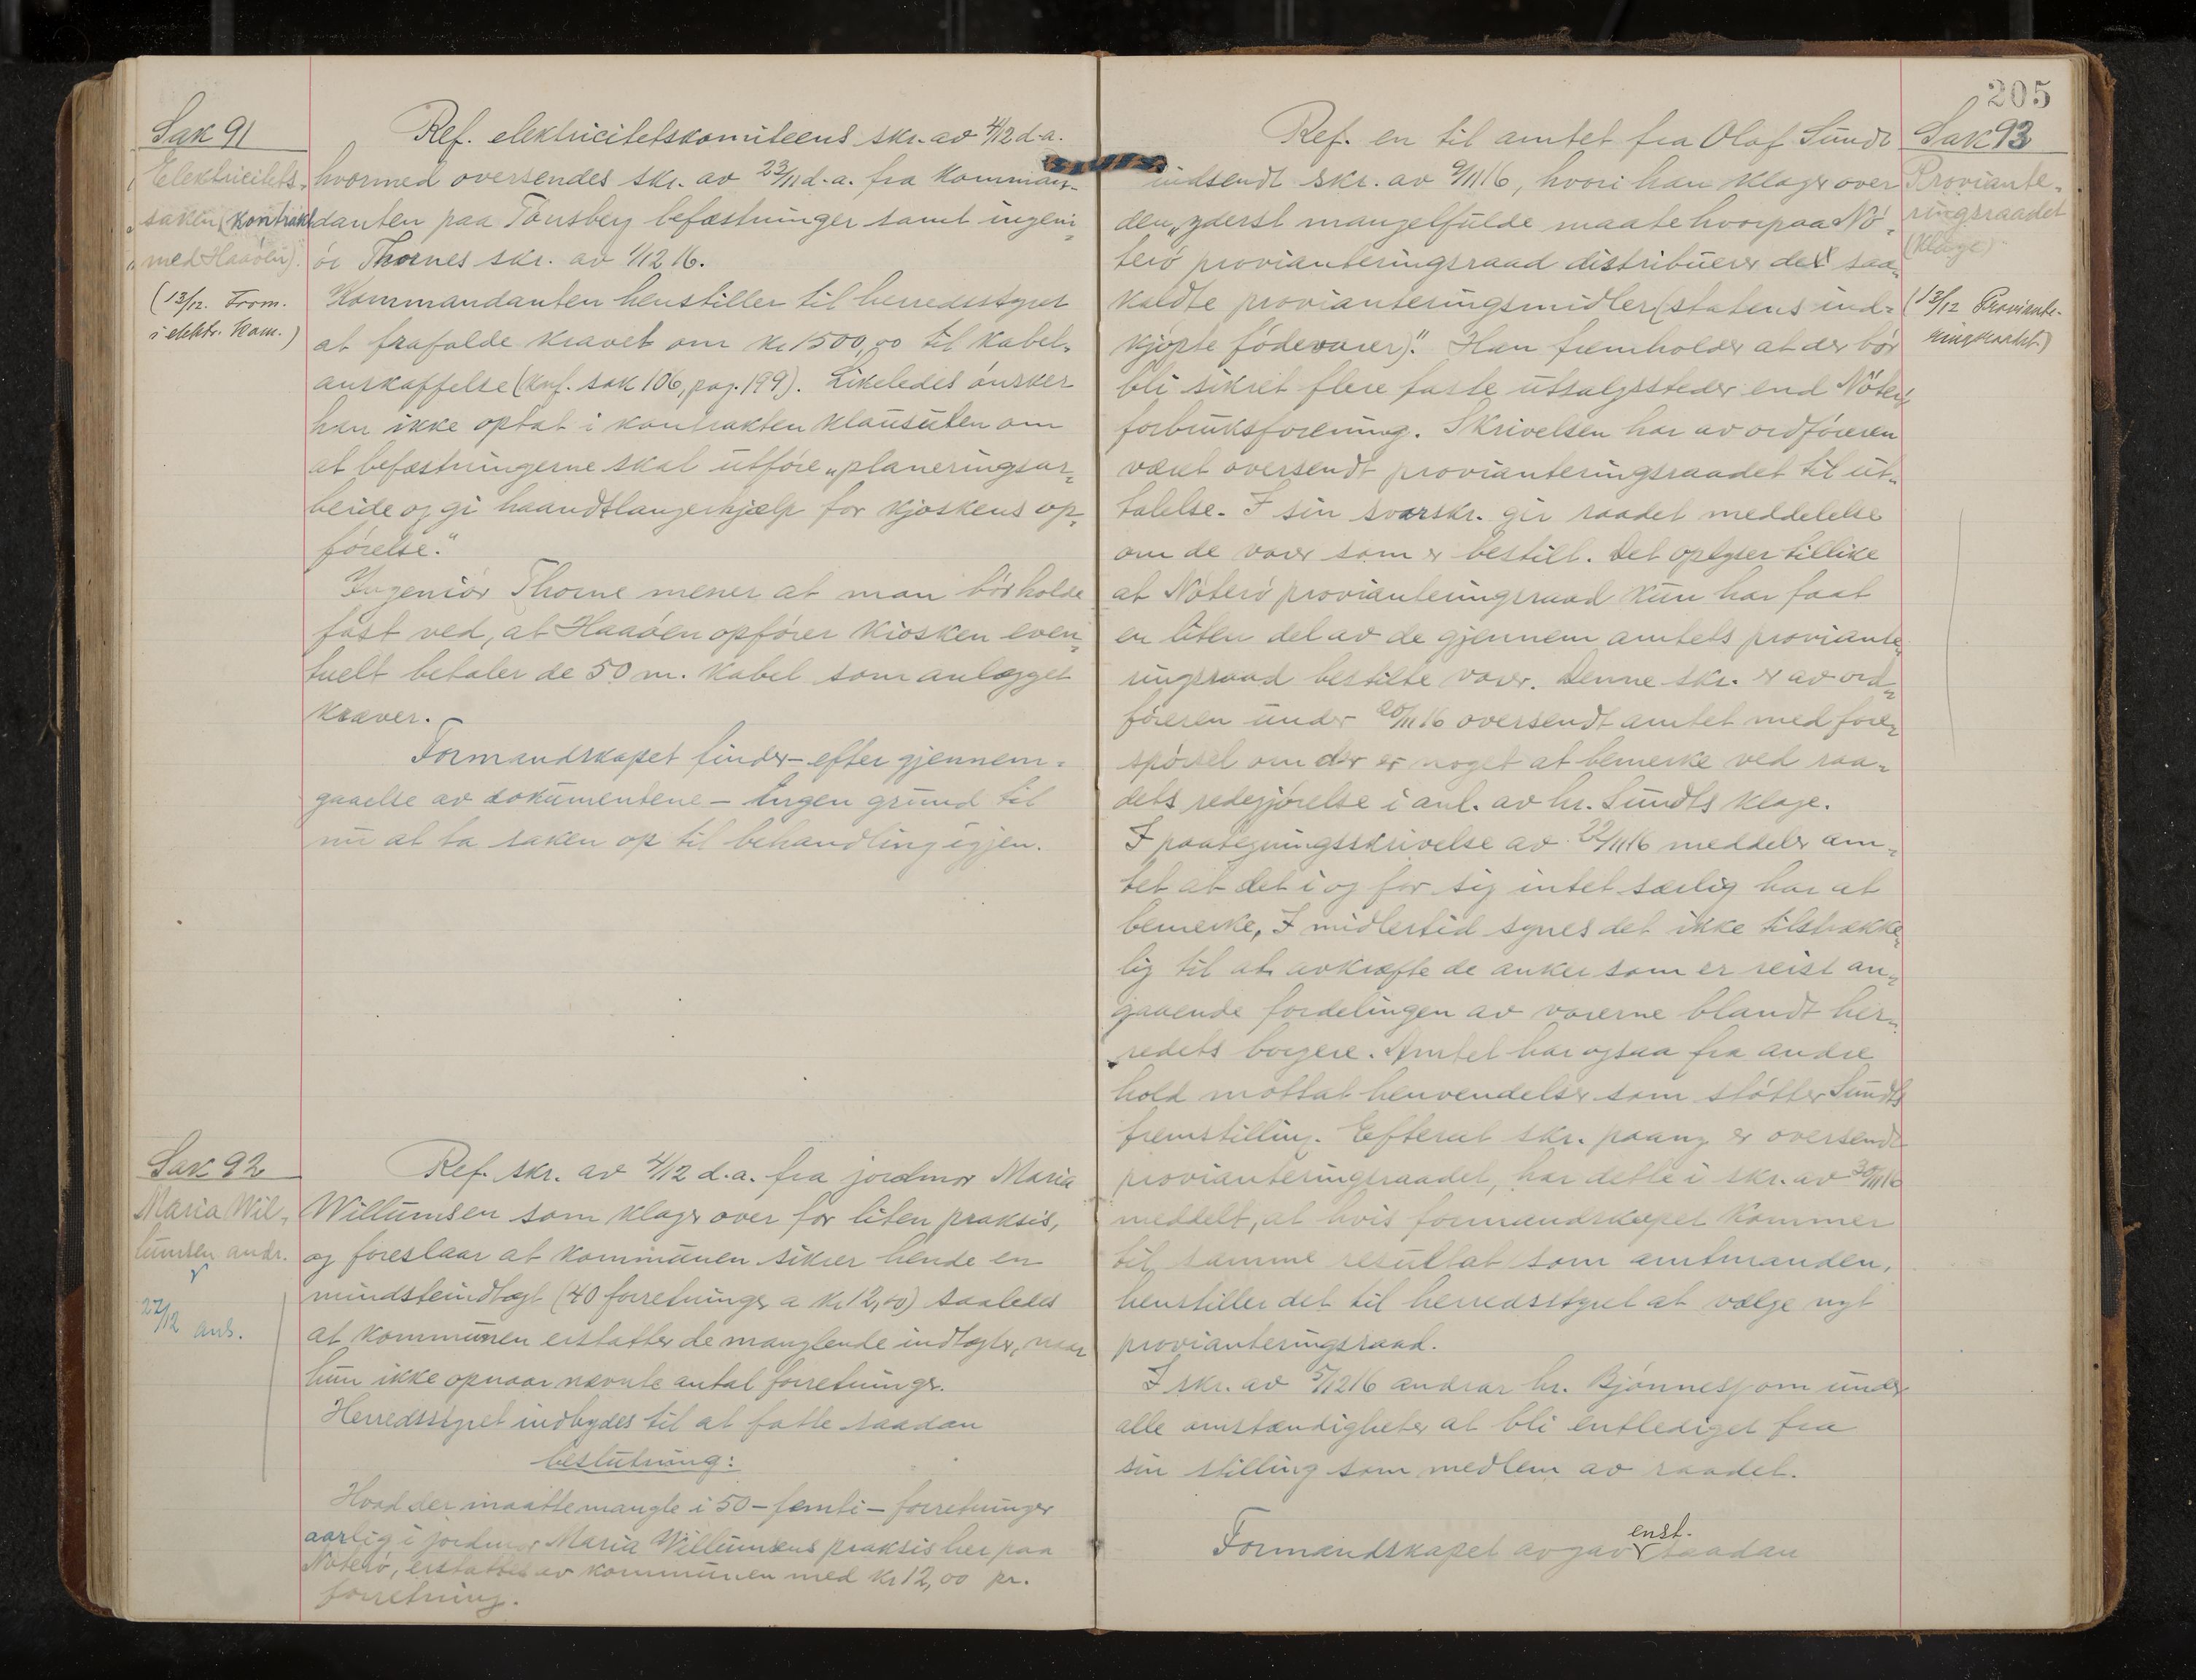 Sak 91
Elektricitets-
saken (kontrakt
med Haaöen).
(13/12. Frem.
i elektr. kom.)
Ref. elektricitetskomiteens skr. av 4/12 d.a.
hvormed oversendes skr. av 23/11 d.a. fra komman-
danten paa Tönsberg befæstninger samt ingeni-
ör Thornes skr. av 1/12 16.
Kommandanten henstiller til herredsstyret
at frafalde kravet om kr 1500,00 til kabel-
anskaffelse (knf. sak 106, pag. 199). Likeledes önsker
han ikke optat i kontrakten klausulen om
at befæstningerne skal utföre „planeringsar-
beide og gi haandtlangerhjælp for kjoskens op-
förelse."
Ingeniör Thorne mener at man bör holde
fast ved, at Haaöen opförer kiosken even-
tuelt betaler de 50 m. kabel som anlægget
kræver.
Formandskapet finder - efter gjennem-
gaaelse av dokumentene - ingen grund til
nu at ta saken op til behandling igjen.
Sak 92
Maria Wil-
lumsen andr.
27/12 anb.
Ref. skr. av 4/12 d.a. fra jordmor Maria
Willumsen som klager over for liten praksis,
og foreslaar at kommunen sikrer hende en
mindsteindtægt (40 forretninger a kr 12,00) saaledes
at kommunen erstatter de manglende indtægter, naar
hun ikke opnaar nævnte antal forretninger.
Herredsstyret indbydes til at fatte saadan
beslutning:
Hvad der maatte mangle i 50 - femti - forretninger
aarlig i jordmor Maria Willumsens praksis her paa
Nöterö, erstattes av kommunen med kr 12,00 pr.
forretning.
205
Sak 93
Proviante-
ringsraadet
(klage)
(13/12 Proviante-
ringskartet)
Ref. en til amtet fra Olaf Sundt
indsendt skr. av 9/11 16, hvori han klager over
den „yderst mangelfulde maate hvorpaa Nö-
terö provianteringsraad distribuerer de saa-
kaldte provianteringsmidler (statens ind-
kjöpte födevarer)." Han fremholder at der bör
bli sikret flere faste utsalgssteder end Nöterö
forbruksforening. Skrivelsen har av ordföreren
været oversendt provianteringsraadet til ut-
talelse. I sin svarskr. gir raadet meddelelse
om de varer som er bestilt. Det oplyser tillike
at Nöterö provianteringsraad kun har faat
en liten del av de gjennem amtets proviante-
ringsraad bestilte varer. Denne skr. er av ord-
föreren under 20/11 16 oversendt amtet med fore-
spörsel om der er noget at bemerke ved raa-
dets redegjörelse i anl. av hr. Sundts klage.
I paategningsskrivelse av 22/11 16 meddeler am-
tet at det i og for sig intet særlig har at
bemerke, I midlertid synes det ikke tilstrække-
lig til at avkræfte de anker som er reist an-
gaaende fordelingen av varerne blandt her-
redets borgere. Amtet har ogsaa fra andre
hold mottat henvendelser som stötter Sundts
fremstilling. Efterat skr. paany er oversendt
provianteringsraadet, har dette i skr. av 30/11 16
meddelt, at hvis formandskapet kommer
til samme resultat som amtmanden,
henstiller det til herredsstyret at vælge nyt
provianteringsraad.
I skr. av 5/12 16 andrar hr. Bjönness om under
alle omstændigheter at bli entlediget fra
sin stilling som medlem av raadet.
enst.
Formandskapet avgav saadan